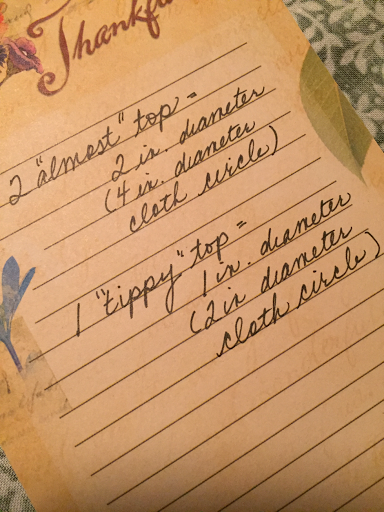 2 "almost" top =
2 in. diameter
(4 in. diameter
cloth circle)
1 "tippy" top =
1 in. diameter
(2 in diameter
cloth circle)